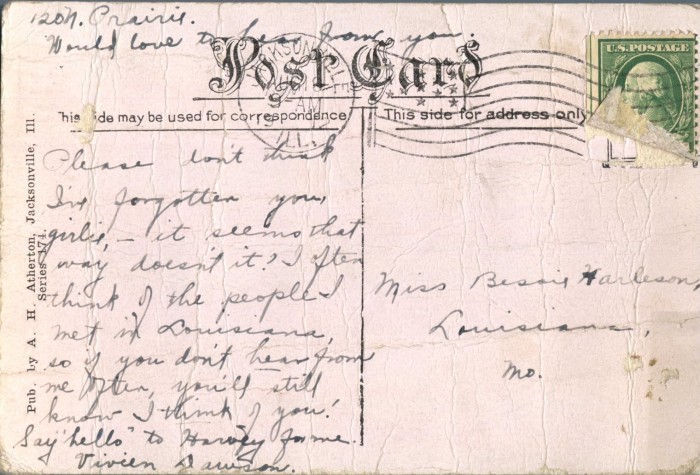 120 N. Prairie.
Would love to hear from you.
Post Card
JACKSONVILLE
AM
ILL.
U.S. POSTAGE
This side may be used for correspondence
This side for address only
Pub. by A. H. Atherton, Jacksonville, Ill.
Series 174.
Please don't think
I've forgotten you,
girlie, – it seems that
way doesn't it? I often
think of the people I
met in Louisiana,
so if you don't hear from
me often, you'll still
know I think of you!
Say "hello" to Harvey for me.
Vivien Dawson.
Miss Bessie Harleson,
Louisiana,
Mo.